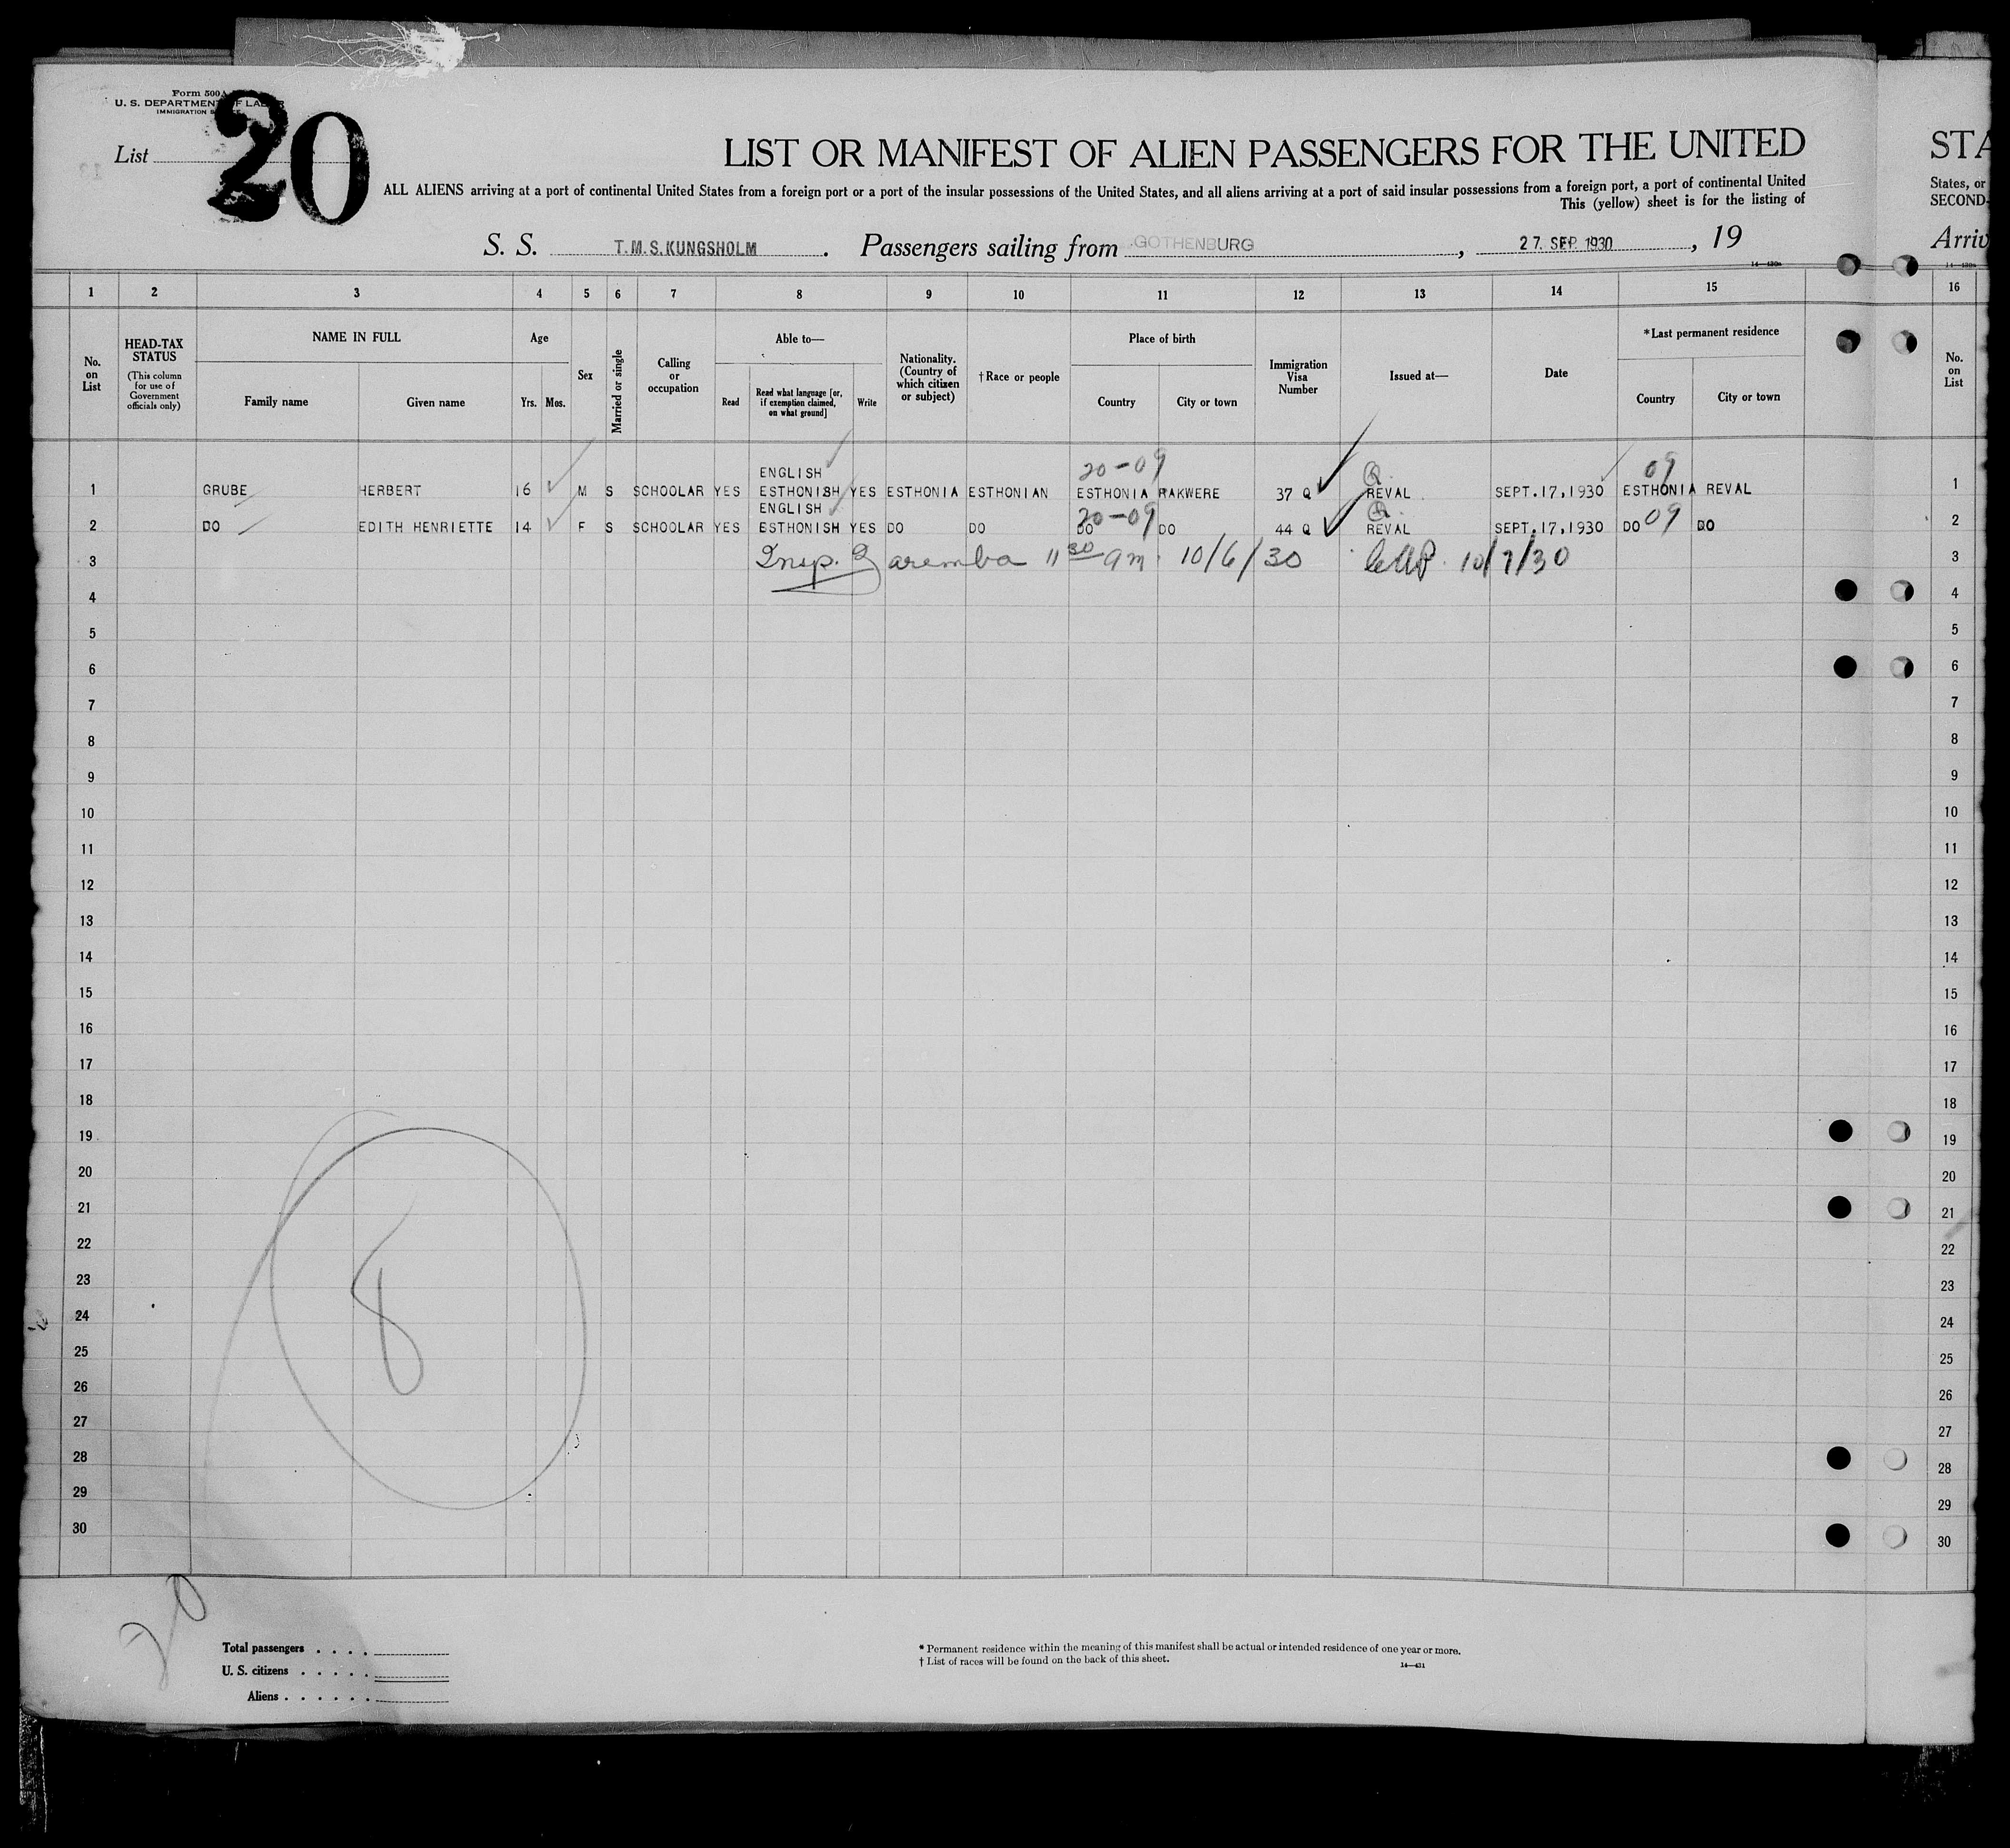 Form 500
U. S. DEPARTMENT OF LABOR
IMMIGRATION
List 20
LIST OR MANIFEST OF ALIEN PASSENGERS FOR THE UNITED STA
ALL ALIENS arriving at a port of continental United States from a foreign port or a port of the insular possessions of the United States, and all aliens arriving at a port of said insular possessions from a foreign port, a port of continental United States, or
This (yellow) sheet is for the listing of SECOND-
S. S. T.M.S. KUNGSHOLM. Passengers sailing from GOTHENBURG, 27. SEP. 1930, 19 Arriv
1 2 3 4 5 6 7 8 9 10 11 12 13 14 15 16
No. on List
HEAD-TAX STATUS (This column for use of Government officials only)
NAME IN FULL
Family name
Given name
Age
Yrs. Mos.
Sex
Married or single
Calling or occupation
Able to—
Read
Read what language [or, if exemption claimed, on what ground]
Write
Nationality. (Country of which citizen or subject)
†Race or people
Place of birth
Country
City or town
Immigration Visa Number
Issued at—
Date
*Last permanent residence
Country
City or town
No. on List
ENGLISH 20-09 Q 09
1 GRUBE HERBERT 16 M S SCHOOLAR YES ESTHONISH YES ESTHONIA ESTHONIAN ESTHONIA RAKWERE 37 Q REVAL SEPT.17,1930 ESTHONIA REVAL 1
ENGLISH 20-09 Q
2 DO EDITH HENRIETTE 14 F S SCHOOLAR YES ESTHONISH YES DO DO DO DO 44 Q REVAL SEPT.17,1930 DO 09 DO 2
3 Insp. Zaremba 11 30 am. 10/6/30 10/7/30 3
4 4
5 5
6 6
7 7
8 8
9 9
10 10
11 11
12 12
13 13
14 14
15 15
16 16
17 17
18 18
19 19
20 20
21 21
22 22
23 23
24 24
25 25
26 26
27 27
28 28
29 29
30 30
8
20
Total passengers . . . .
U. S. citizens . . . . .
Aliens . . . . . .
* Permanent residence within the meaning of this manifest shall be actual or intended residence of one year or more.
† List of races will be found on the back of this sheet.
14—431